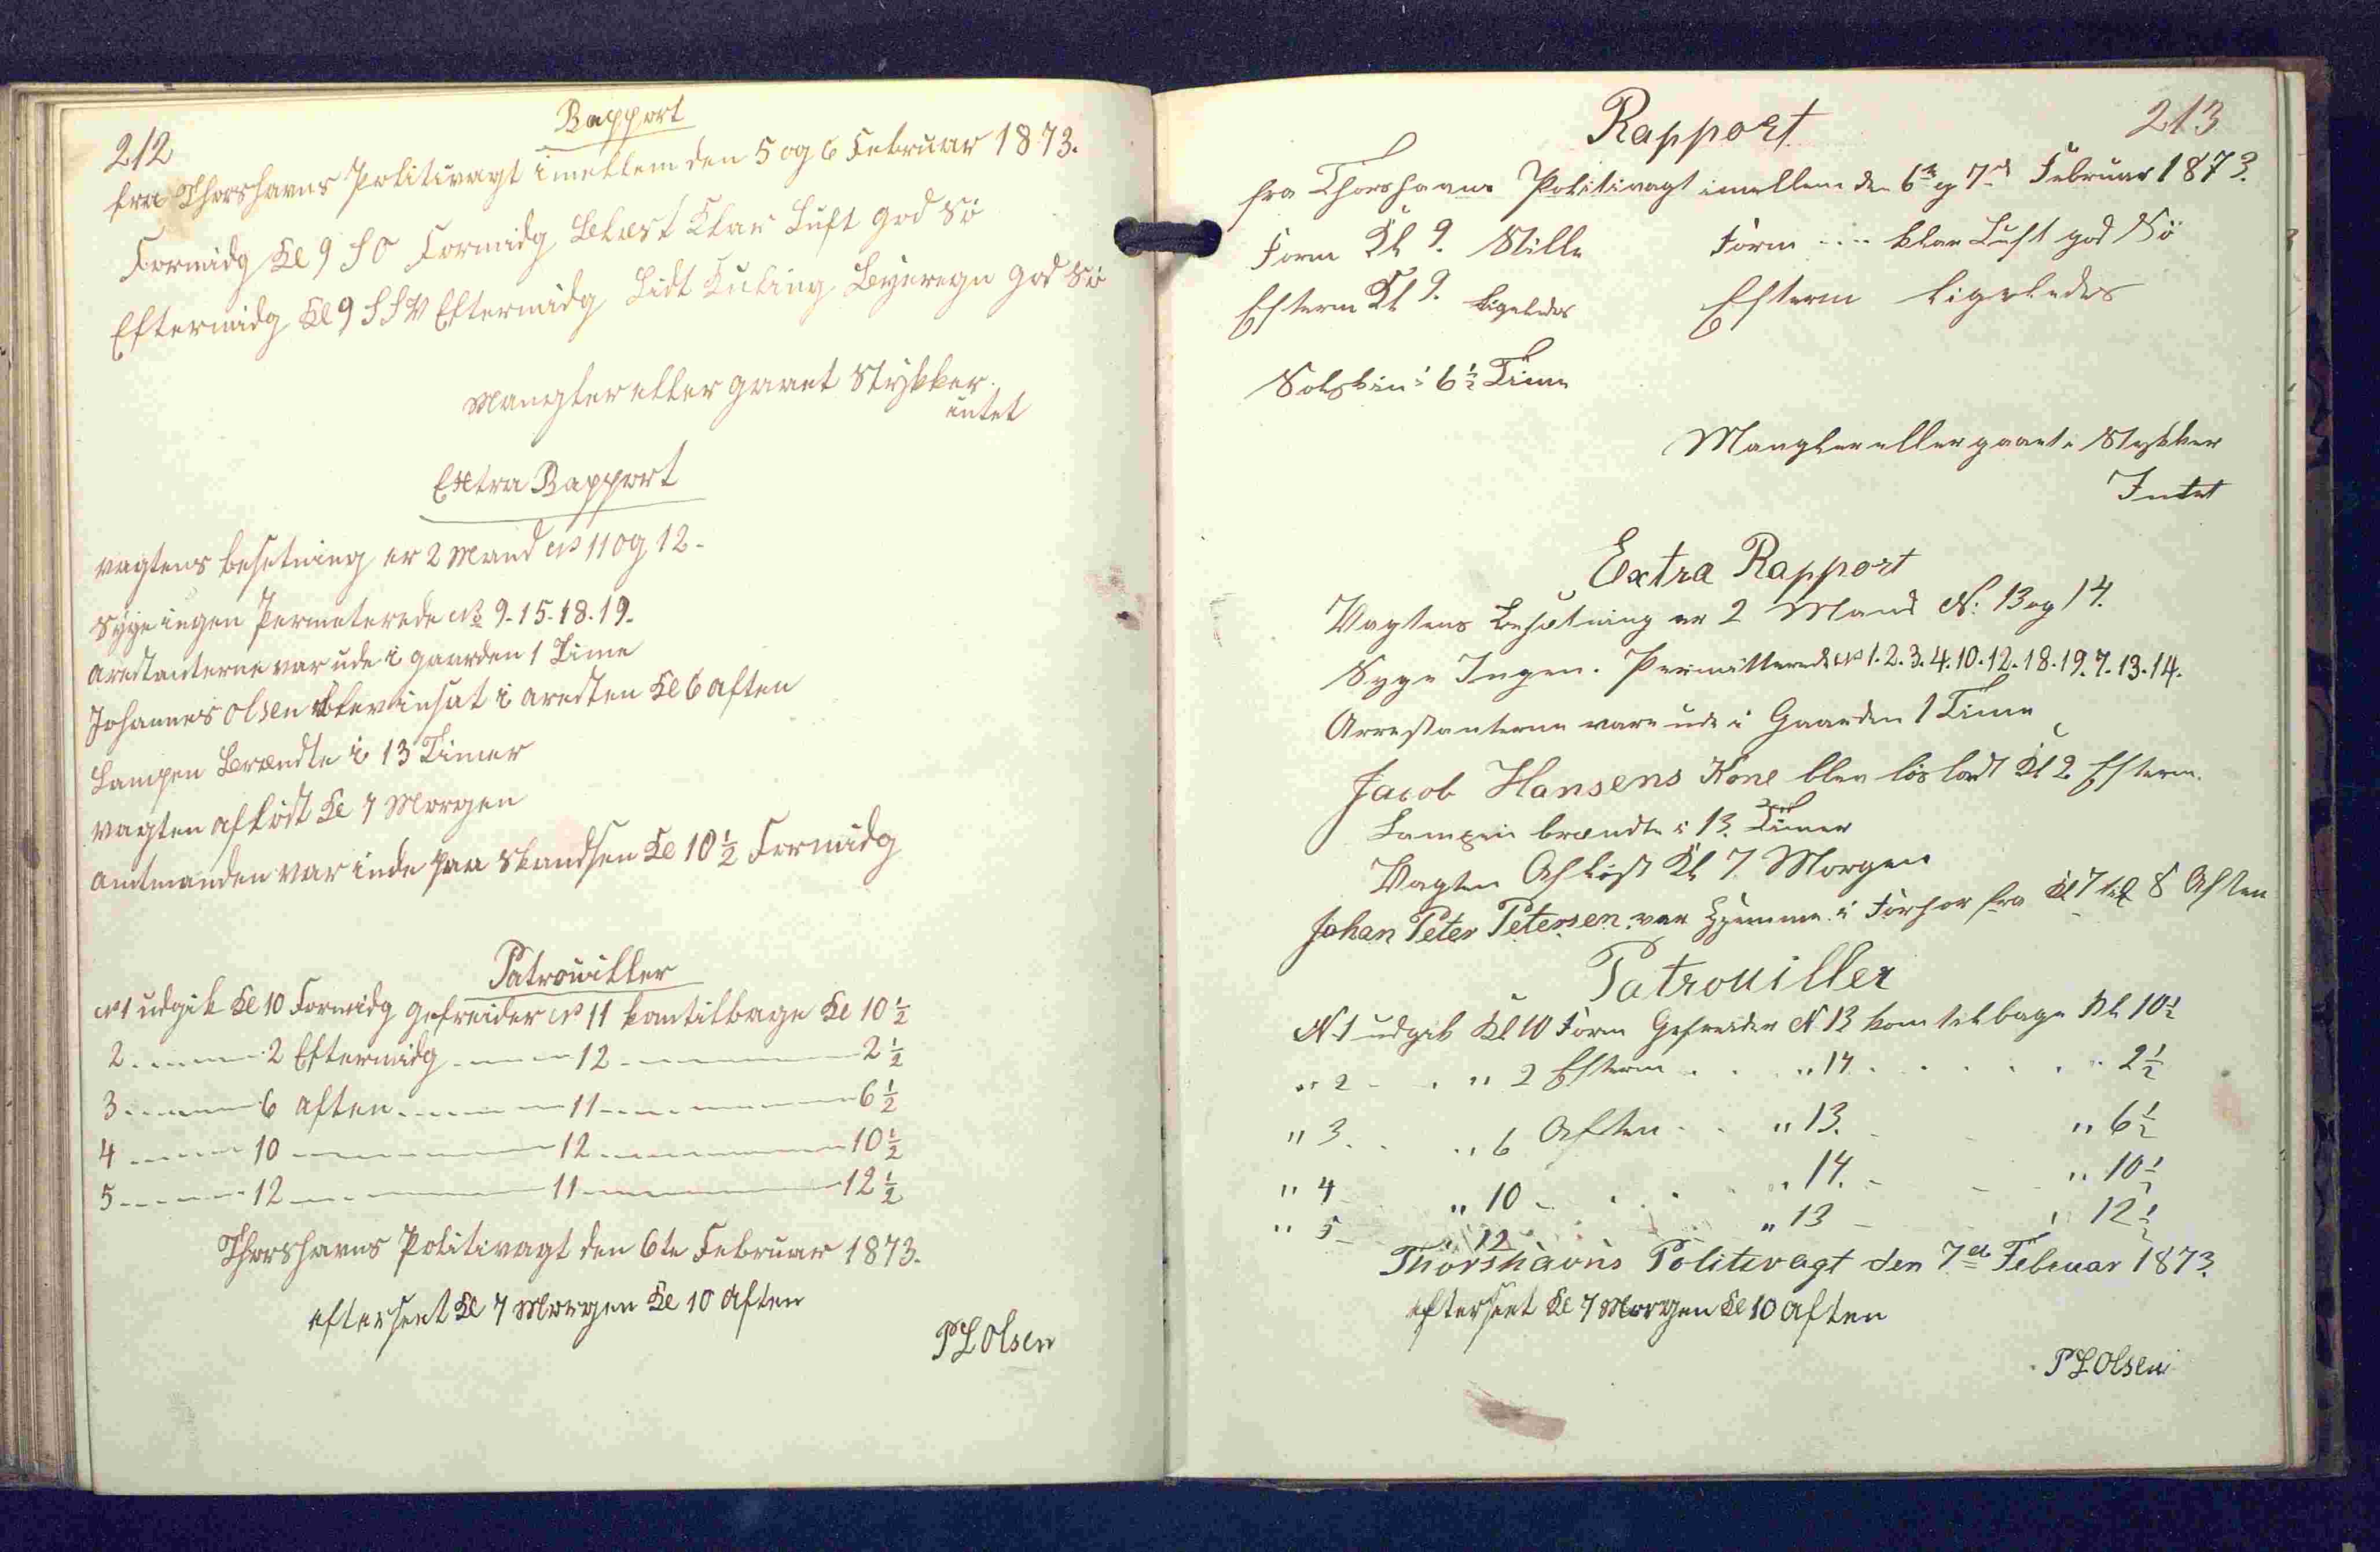 212
Rapport
fra Thorshavns Politivagt imellem den 5 og 6 Februar 1873.
Formidg Kl 9 SO Formidg Blæst Klar Luft god Sö
Eftermidg Kl 9 SSV Eftermidg Lidt Kuling Byeregn god Sö
Mangler eller gaaet Stykker.
intet
Extra Rapport
vagtens besetning er 2 Mand No 11 og 12-
Syge ingen Permeterede No 9-15-18.19.
arestanterne var ude i gaarden 1 Time
Johannes Olsen blev insat i aresten Kl 6 aften
Lampen Brændte i 13 Timer
vagten aflöst Kl 7 Morgen
amtmanden var inde paa Skandsen Kl 10 1/2 Formidg
Patrouiller
No 1 udgik Kl 10 Formidg gefreider No 11 kom tilbage Kl 10 1/2
2 ------ 2 Eftermidg ------ 12 ------ 2 1/2
3 ------ 6 aften ------ 11 ------ 6 1/2
4 ------ 10 ------ 12 ------ 10 1/2
5 ------ 12 ------ 11 ------ 12 1/2
Thorshavns Politivagt den 6te Februar 1873.
efterseet Kl 7 Morgen Kl 10 aften
P L Olsen
213
Rapport
fra Thorshavns Politivagt imellem den 6te og 7de Februar 1873.
Form Kl 9. Stille Form .... klar Luft god Sö
Efterm Kl 9. ligeledes Efterm ligeledes
Solskin i 6 1/2 Time
Mangler eller gaaet i Stykker
Intet
Extra Rapport
Vagtens Besætning er 2 Mand No: 13 og 14.
Syge Ingen. Permitterede No 1.2.3.4.10.12.18.19.7.13.14.
Arrestanterne vare ude i Gaarden 1 Time
Jacob Hansens Kone blev lösladt Kl 2. Efterm.
Lampen brændte i 13. Timer
Vagten Aflöst Kl 7. Morgen
Johan Peter Petersen, var Hjemme i Forhör fra Kl 7 til 8 Aften
Patrouiller
N. 1 udgik Kl. 10 Form Gefreider N. 13 kom tilbage Kl 10 1/2
" 2 - . " 2 Efterm . . " 14 . . . . . " 2 1/2
" 3. . . " 6 Aften . . " 13. - - " 6 1/2
" 4 - " 10 - . . . " 14. - - " 10 1/2
" 5 - " 12 . . " 13 - " 12 1/2
Thorshavns Politivagt den 7de Februar 1873.
efterseet Kl 7 Morgen Kl 10 aften
P L Olsen